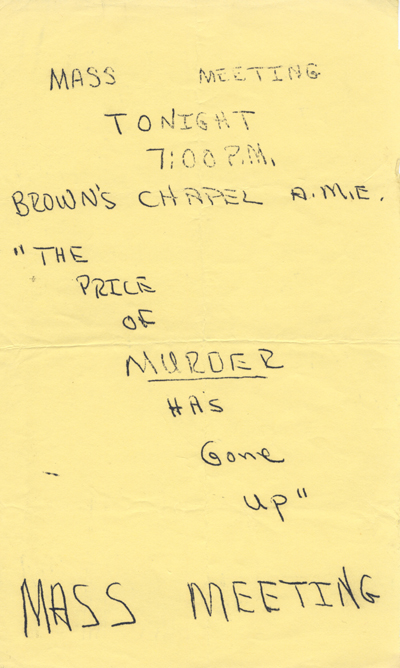 MASS MEETING
TONIGHT
7:00 P.M.
BROWN'S CHAPEL A.M.E.
"THE
PRICE
OF
MURDER
HAS
Gone
Up"
MASS MEETING